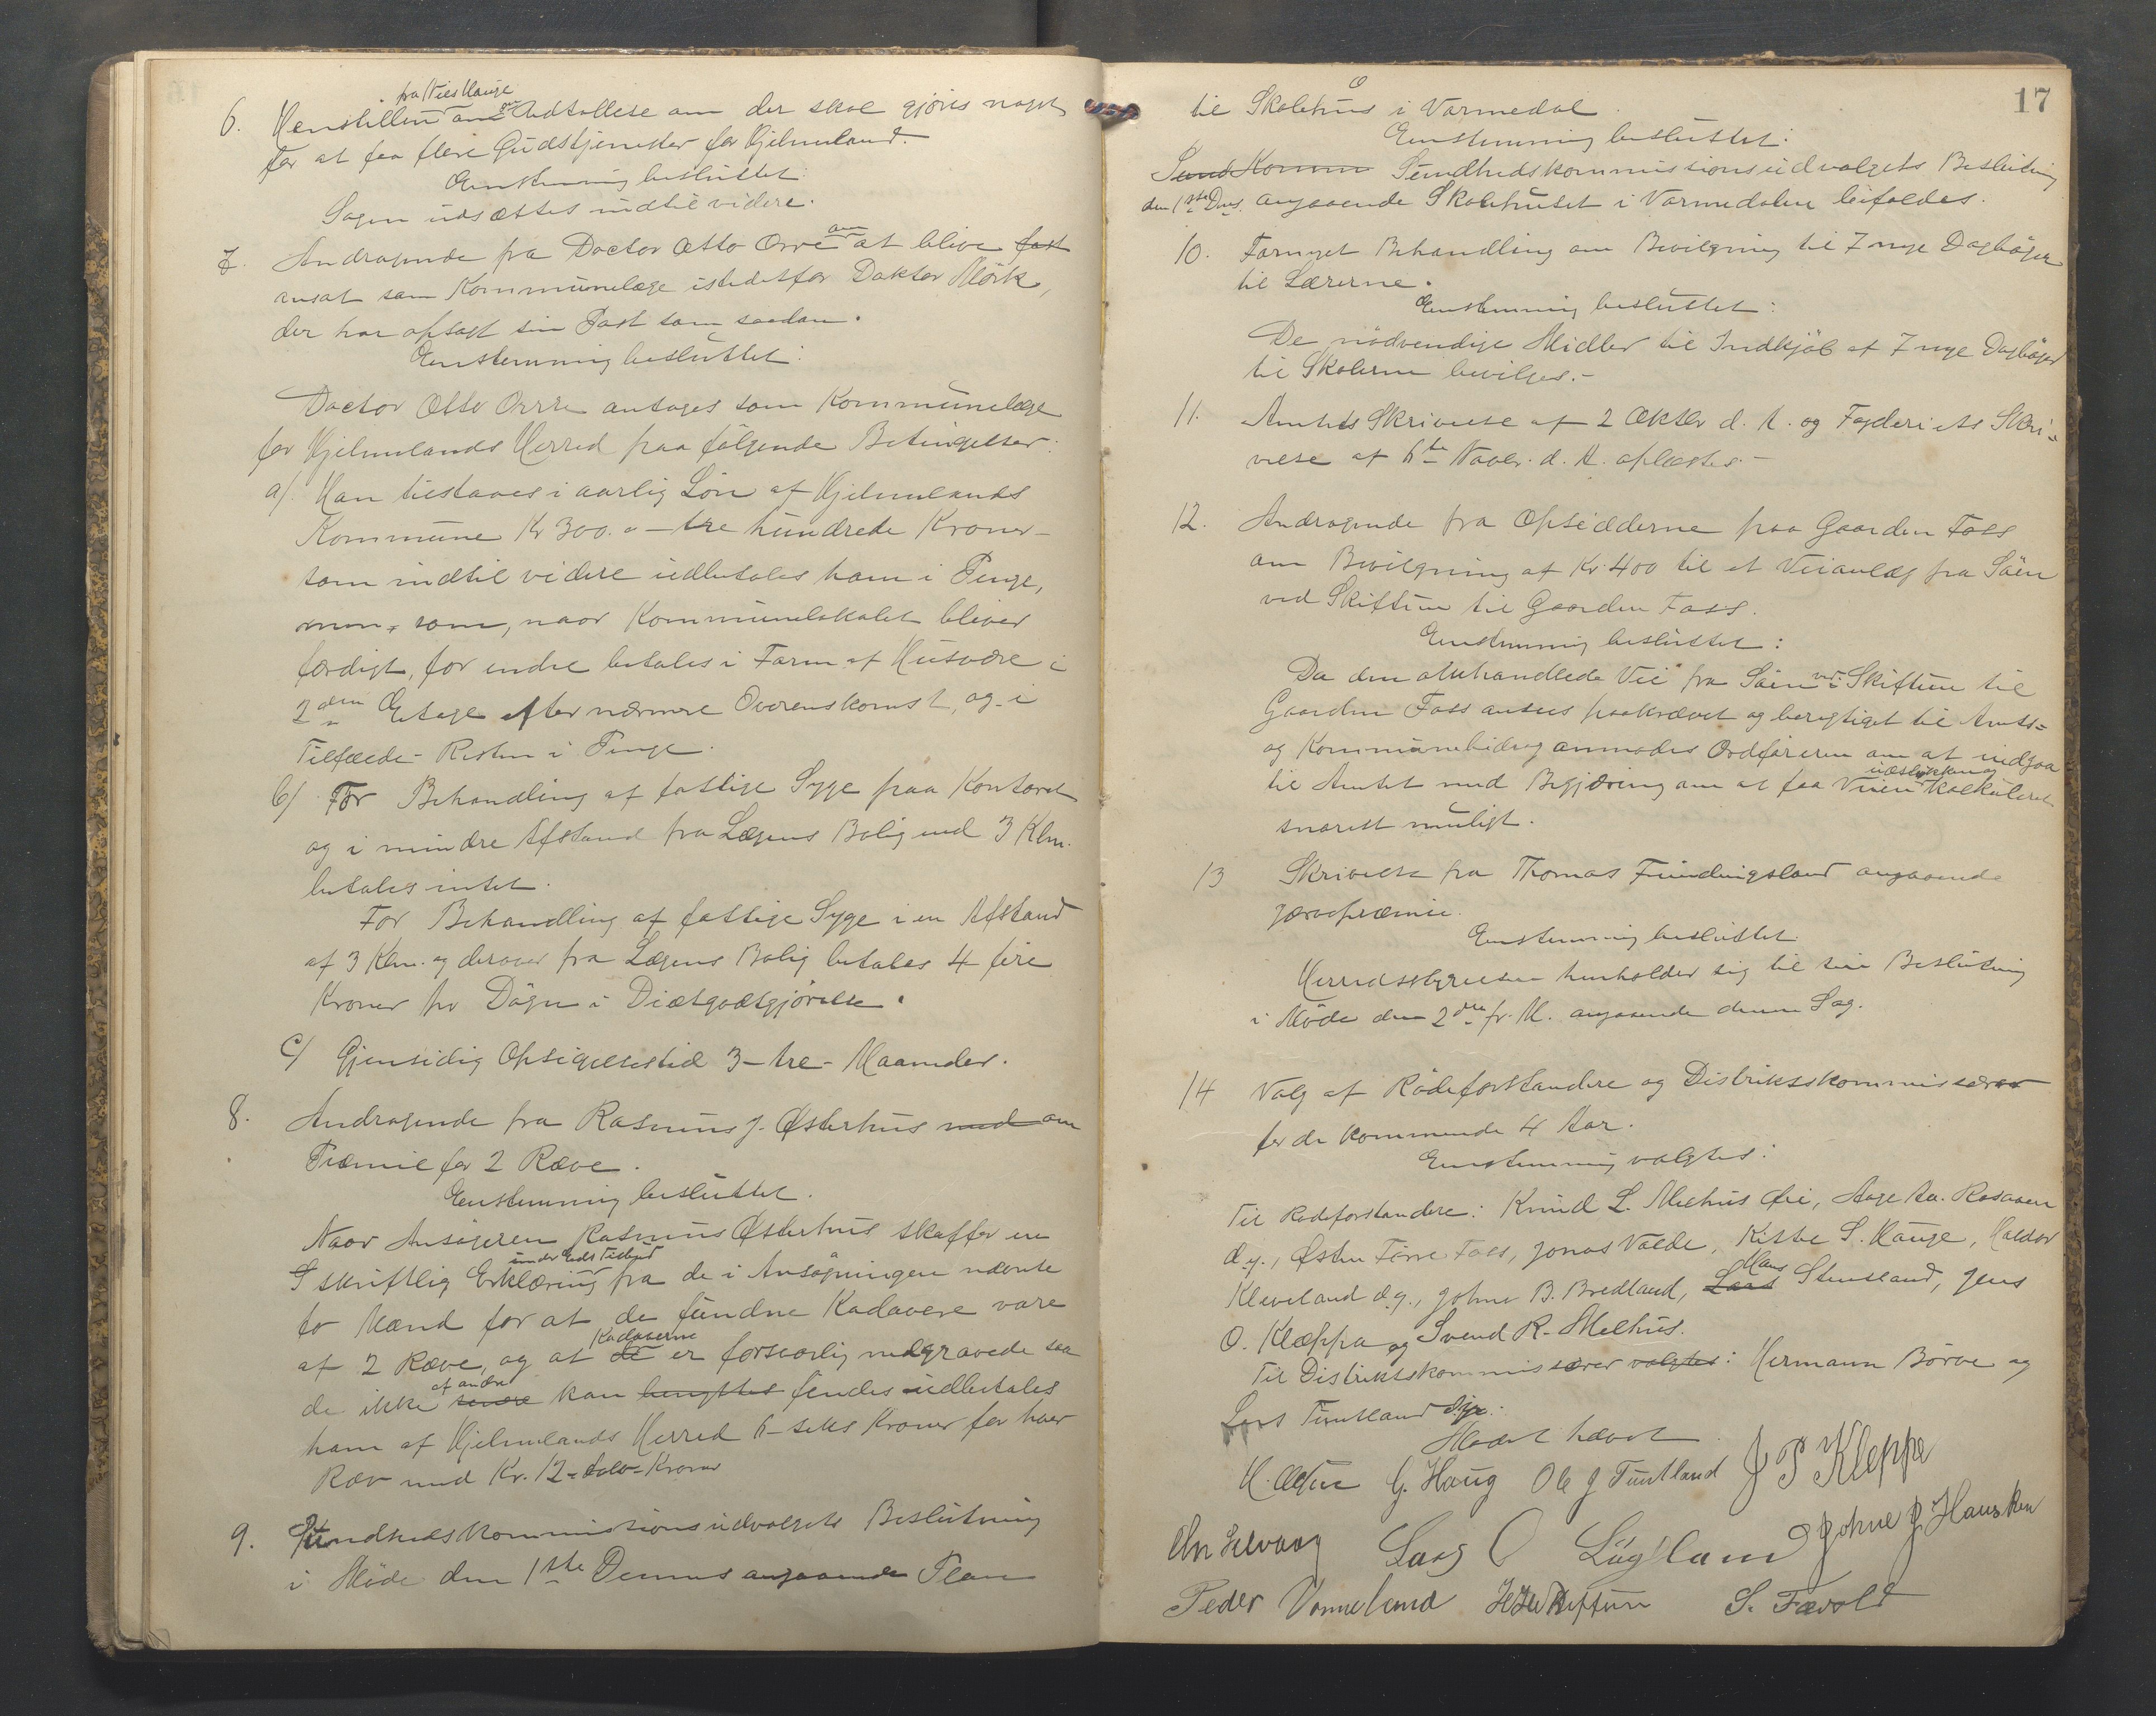 6. Henstillen fra Nils Hauge om Udtallelse om der skal gjøres noget
for at faa flere Gudstjenester for Hjelmeland.
Eenstemmig besluttet:
Sagen udsættes indtil videre.
7. Andragende fra Doctor Otto Orre om at blive fast
ansat som Kommunelæge istedetfor Doktor Mörk,
der har opsagt sin Post som saadan.
Eenstemmig besluttet:
Doctor Otto Orre antages som Kommunelæge
for Hjelmelands Herred paa følgende Betingelser:
a/. Han tilstaaes i aarlig Løn af Hjelmelands
Kommune Kr 300.- tre hundrede Kroner -
som indtil videre udbetales ham i Penge,
men, som, naar Kommunelokalet bliver
færdigt, for endel betales i Form af Husvære i
2den Etage efter nærmere Overenskomst, og i
Tilfælde - Resten i Penge.
b/. For Behandling af fattige Syge paa Kontoret
og i mindre Afstand fra Lægens Bolig end 3 Klm.
betales intet.
For Behandling af fattige Syge i en Afstand
af 3 Klm. og derover fra Lægens Bolig betales 4 fire
Kroner pr Døgn i Diætgodtgjørelse.
c/ Gjensidig Opsigelsestid 3 - tre - Maaneder.
8. Andragende fra Rasmus J. Østerhus med om
Præmie for 2 Ræve.
Eenstemmig besluttet.
Naar Ansøgeren Rasmus Østerhus skaffer en
S skriftlig Erklæring under Eds Tilbud fra de i Ansøgningen nævnte
to Mænd for at de fundne Kadavere vare
af 2 Ræve, og at de Kadaverne er forsvarlig nedgravede saa
de ikke senere af andre kan benyttes findes udbetales
ham af Hjelmelands Herred 6 - seks Kroner for hver
Ræv med Kr. 12 - tolv - Kroner
9. Sundhedskommissionsudvalgets Beslutning
i Møde den 1ste Dennes angaaende Plan
17
til Skolehus i Vormedal.
Eenstemmig besluttet:
Sund Komm Sundhedskommissionsudvalgets Beslutning
den 1ste Dns. angaaende Skolehuset i Vormedalen bifaldes.
10. Fornyet Behandling om Bevilgning til 7 nye Dagbøger
til Lærerne.
Eenstemmig besluttet:
De nødvendige Midler til Indkjøb af 7 nye Dagbøger
til Skolerne bevilges.-
11. Amtets Skrivelse af 2 Oktbr d. A. og Fogderiets Skri-
velse af 6te Novbr. d. A. oplæstes.-
12. Andragende fra Opsidderne paa Gaarden Foss
om Bevilgning af Kr. 400 til et Veianlæg fra Søen
ved Skiftun til Gaarden Foss.
Eenstemmig besluttet:
Da den omhandlede Vei fra Søen ved Skiftun til
Gaarden Foss ansees paakrævet og beregtiget til Amts-
og Kommunebidrag anmodes Ordføreren om at indgaa
til Amtet med Begjæring om at faa Veien udstukken og kalkuleret
snarest muligt.
13 Skrivelse fra Thomas Fundingsland angaaende
Jærvepræmie.
Eenstemmig besluttet
Herredsstyrelsen henholder sig til sin Beslutning
i Møde den 2den fr. M. angaaende denne Sag.
14 Valg af Rodeforstandere og Distriktskommissærer
for de kommende 4 Aar.
Eenstemmig valgtes:
Til Rodeforstandere: Knud L. Mælhus Øie, Aage Aa. Rosaaen
d.y., Østen Tørre Foss, Jonas Valde, Kittel S. Hauge, Haldor
Kleveland d.y., Johne B. Bredland, Lars Hans Stensland, Jens
O. Kleppa og Svend R. Melhus.
Til Distriktskommissærer valgtes: Hermann Børve og
Lars Tuntland
Mødet hævet
G. Haug Ole J Tuntland J P Kleppe
Chr Selvaag Lars O Lügsland Johne J. Hausken
Peder Vormeland S. Tøvold